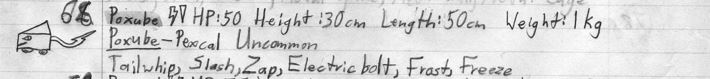 68 Poxube HP:50 Height:30cm Length:50cm Weight:1kg
Poxube-Poxcal Uncommon
Tailwhip, Slash, Zap, Electric bolt, Frost, Freeze